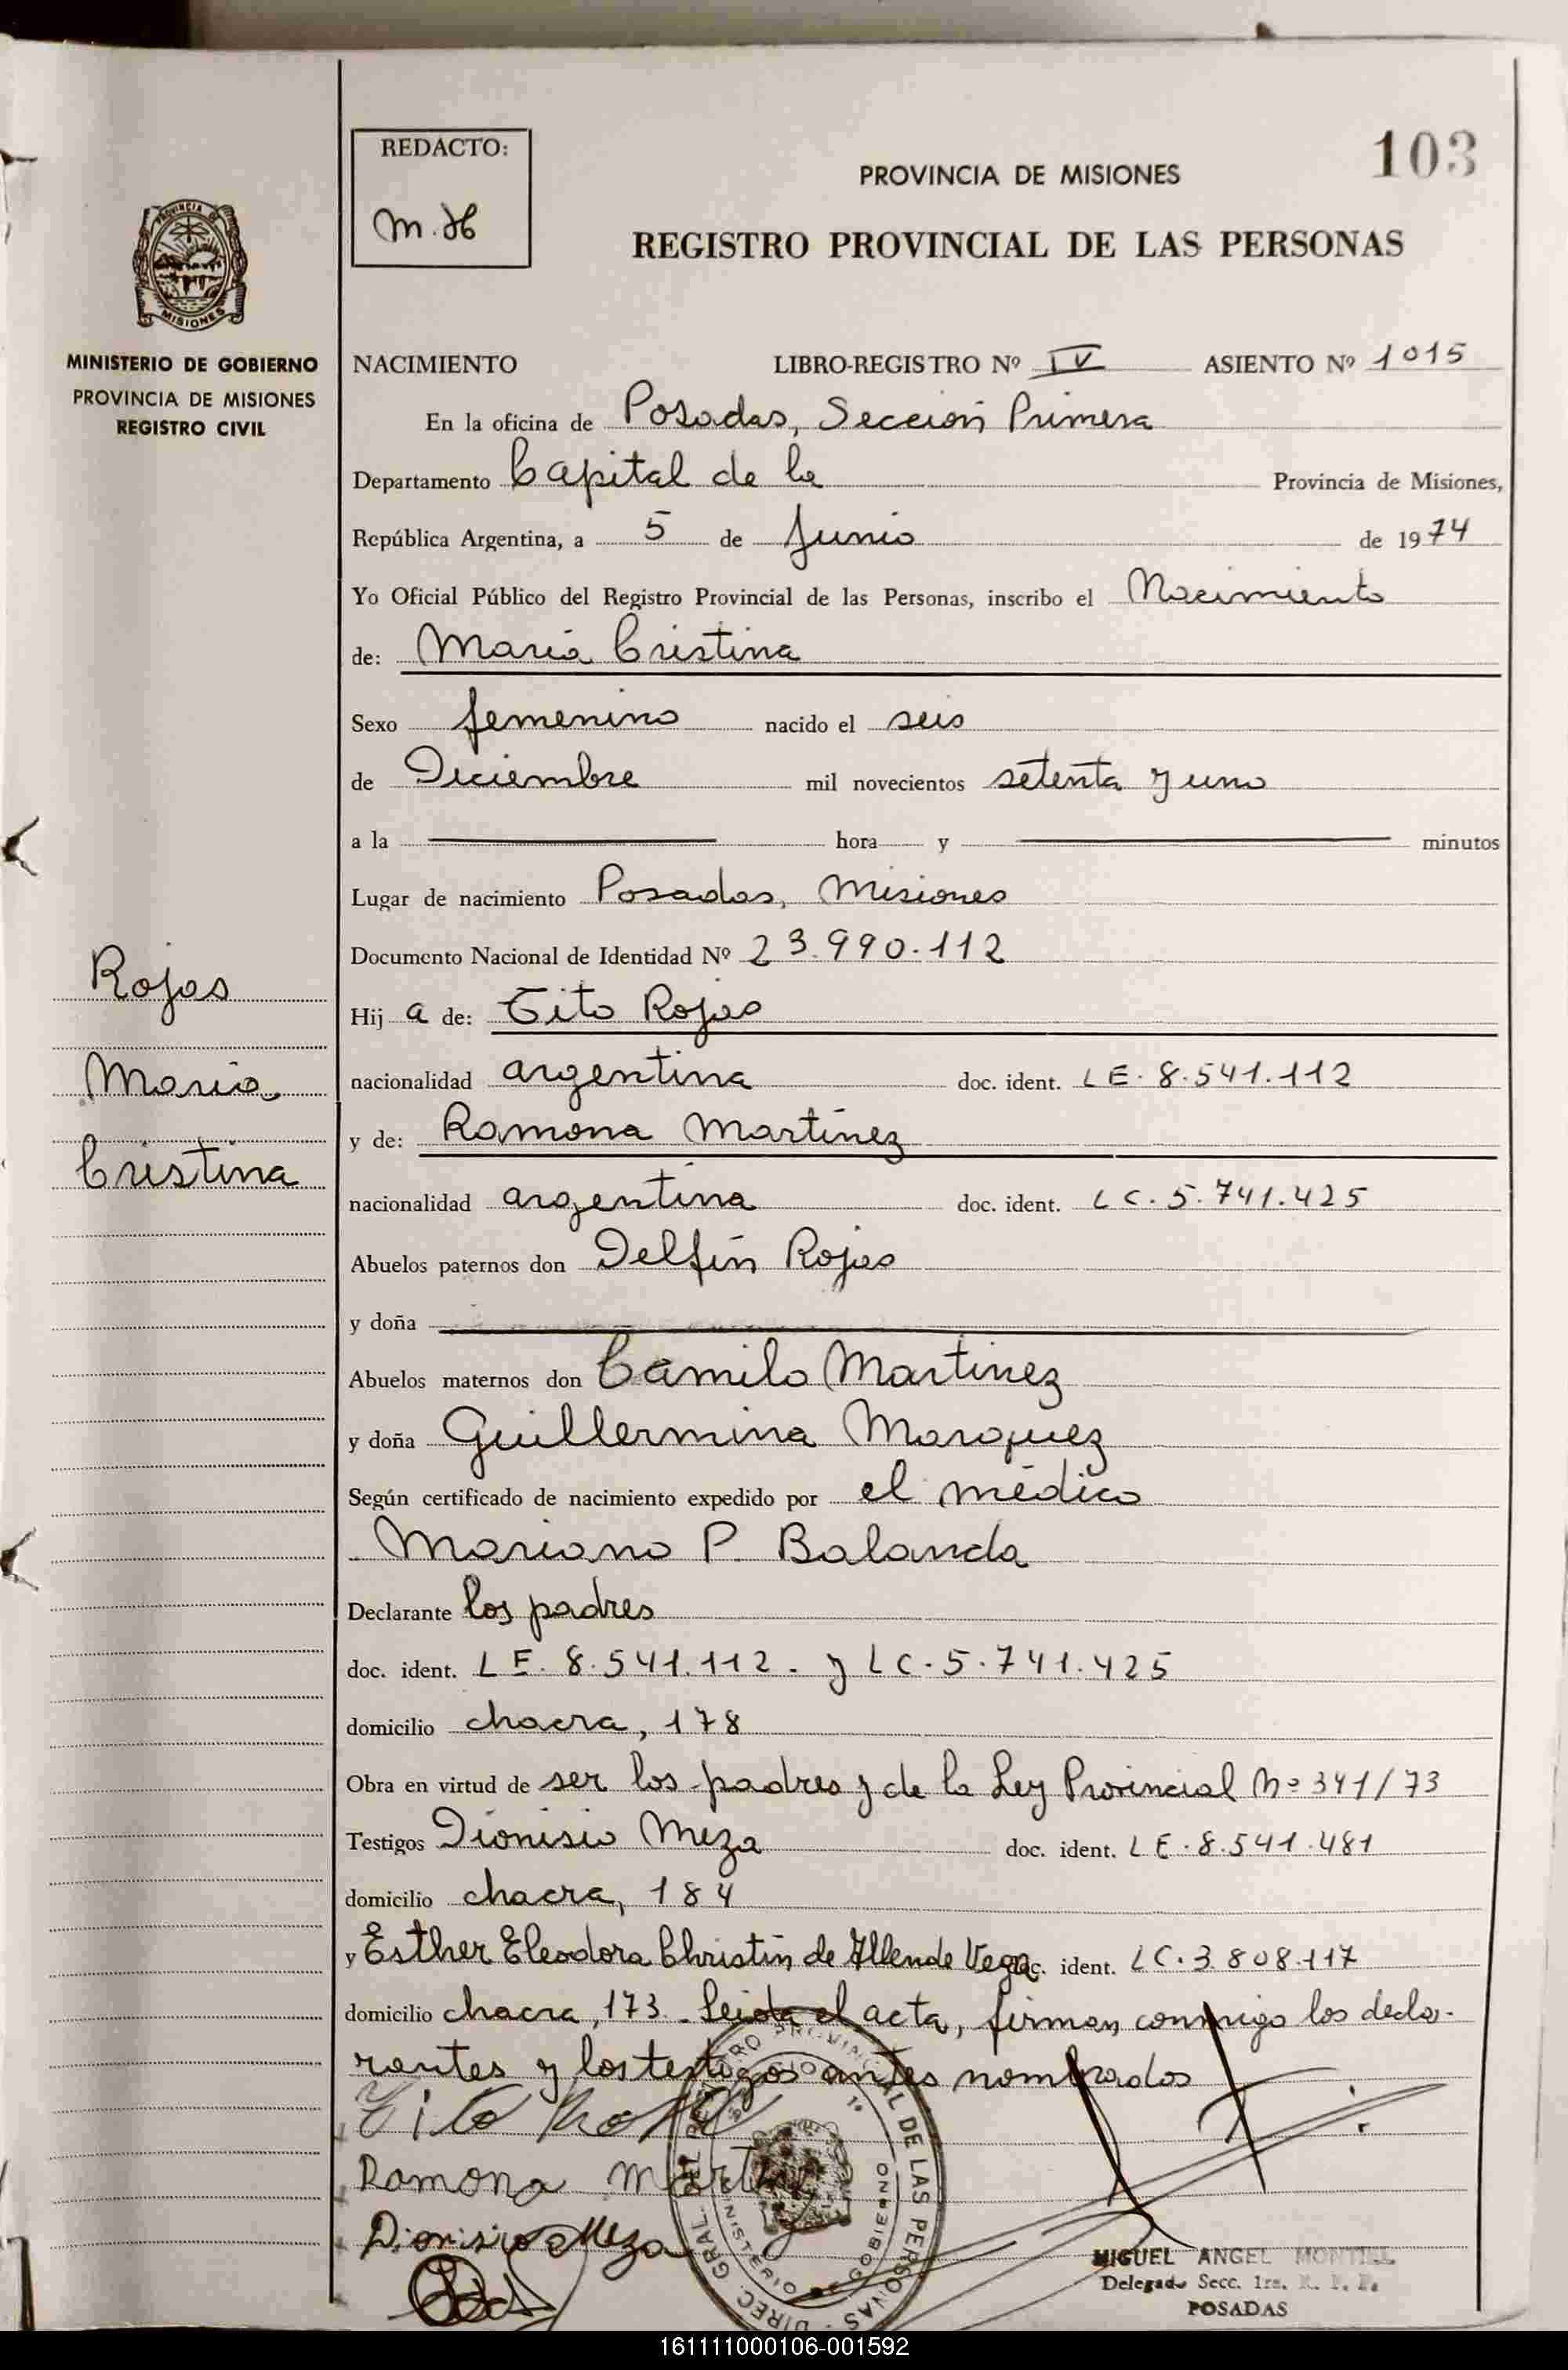 103
REDACTO:
M.H
PROVINCIA DE MISIONES
REGISTRO PROVINCIAL DE LAS PERSONAS
PROVINCIA DE
MISIONES
MINISTERIO DE GOBIERNO
PROVINCIA DE MISIONES
REGISTRO CIVIL
NACIMIENTO LIBRO-REGISTRO Nº IV ASIENTO Nº 1015
En la oficina de Posadas, Sección Primera
Departamento Capital de la Provincia de Misiones,
República Argentina, a 5 de Junio de 1974
Yo Oficial Público del Registro Provincial de las Personas, inscribo el Nacimiento
de: María Cristina
Sexo femenino nacido el seis
de Diciembre mil novecientos setenta y uno
a la hora y minutos
Lugar de nacimiento Posadas, Misiones
Documento Nacional de Identidad Nº 23.990.112
Rojas
María
Cristina
Hij a de: Tito Rojas
nacionalidad argentina doc. ident. LE. 8.541.112
y de: Ramona Martínez
nacionalidad argentina doc. ident. LC. 5.741.425
Abuelos paternos don Delfín Rojas
y doña
Abuelos maternos don Camilo Martínez
y doña Guillermina Marquez
Según certificado de nacimiento expedido por el médico
Mariano P. Balanda
Declarante los padres
doc. ident. LE. 8.541.112. y LC. 5.741.425
domicilio chacra, 178
Obra en virtud de ser los padres y de la Ley Provincial Nº 341/73
Testigos Dionisio Meza doc. ident. LE. 8.541.481
domicilio chacra, 184
y Esther Eleodora Christin de Allende Vega doc. ident. LC. 3.808.117
domicilio chacra, 173. Leida el acta, firman conmigo los decla-
rantes y los testigos antes nombrados
Tito Rojas
Ramona Martinez
Dionisio Meza
DIREC. GRAL. REGISTRO PROVINCIAL DE LAS PERSONAS
MINISTERIO DE GOBIERNO
MIGUEL ANGEL MONTIEL
Delegado Secc. 1ra. R. P. P.
POSADAS
161111000106-001592